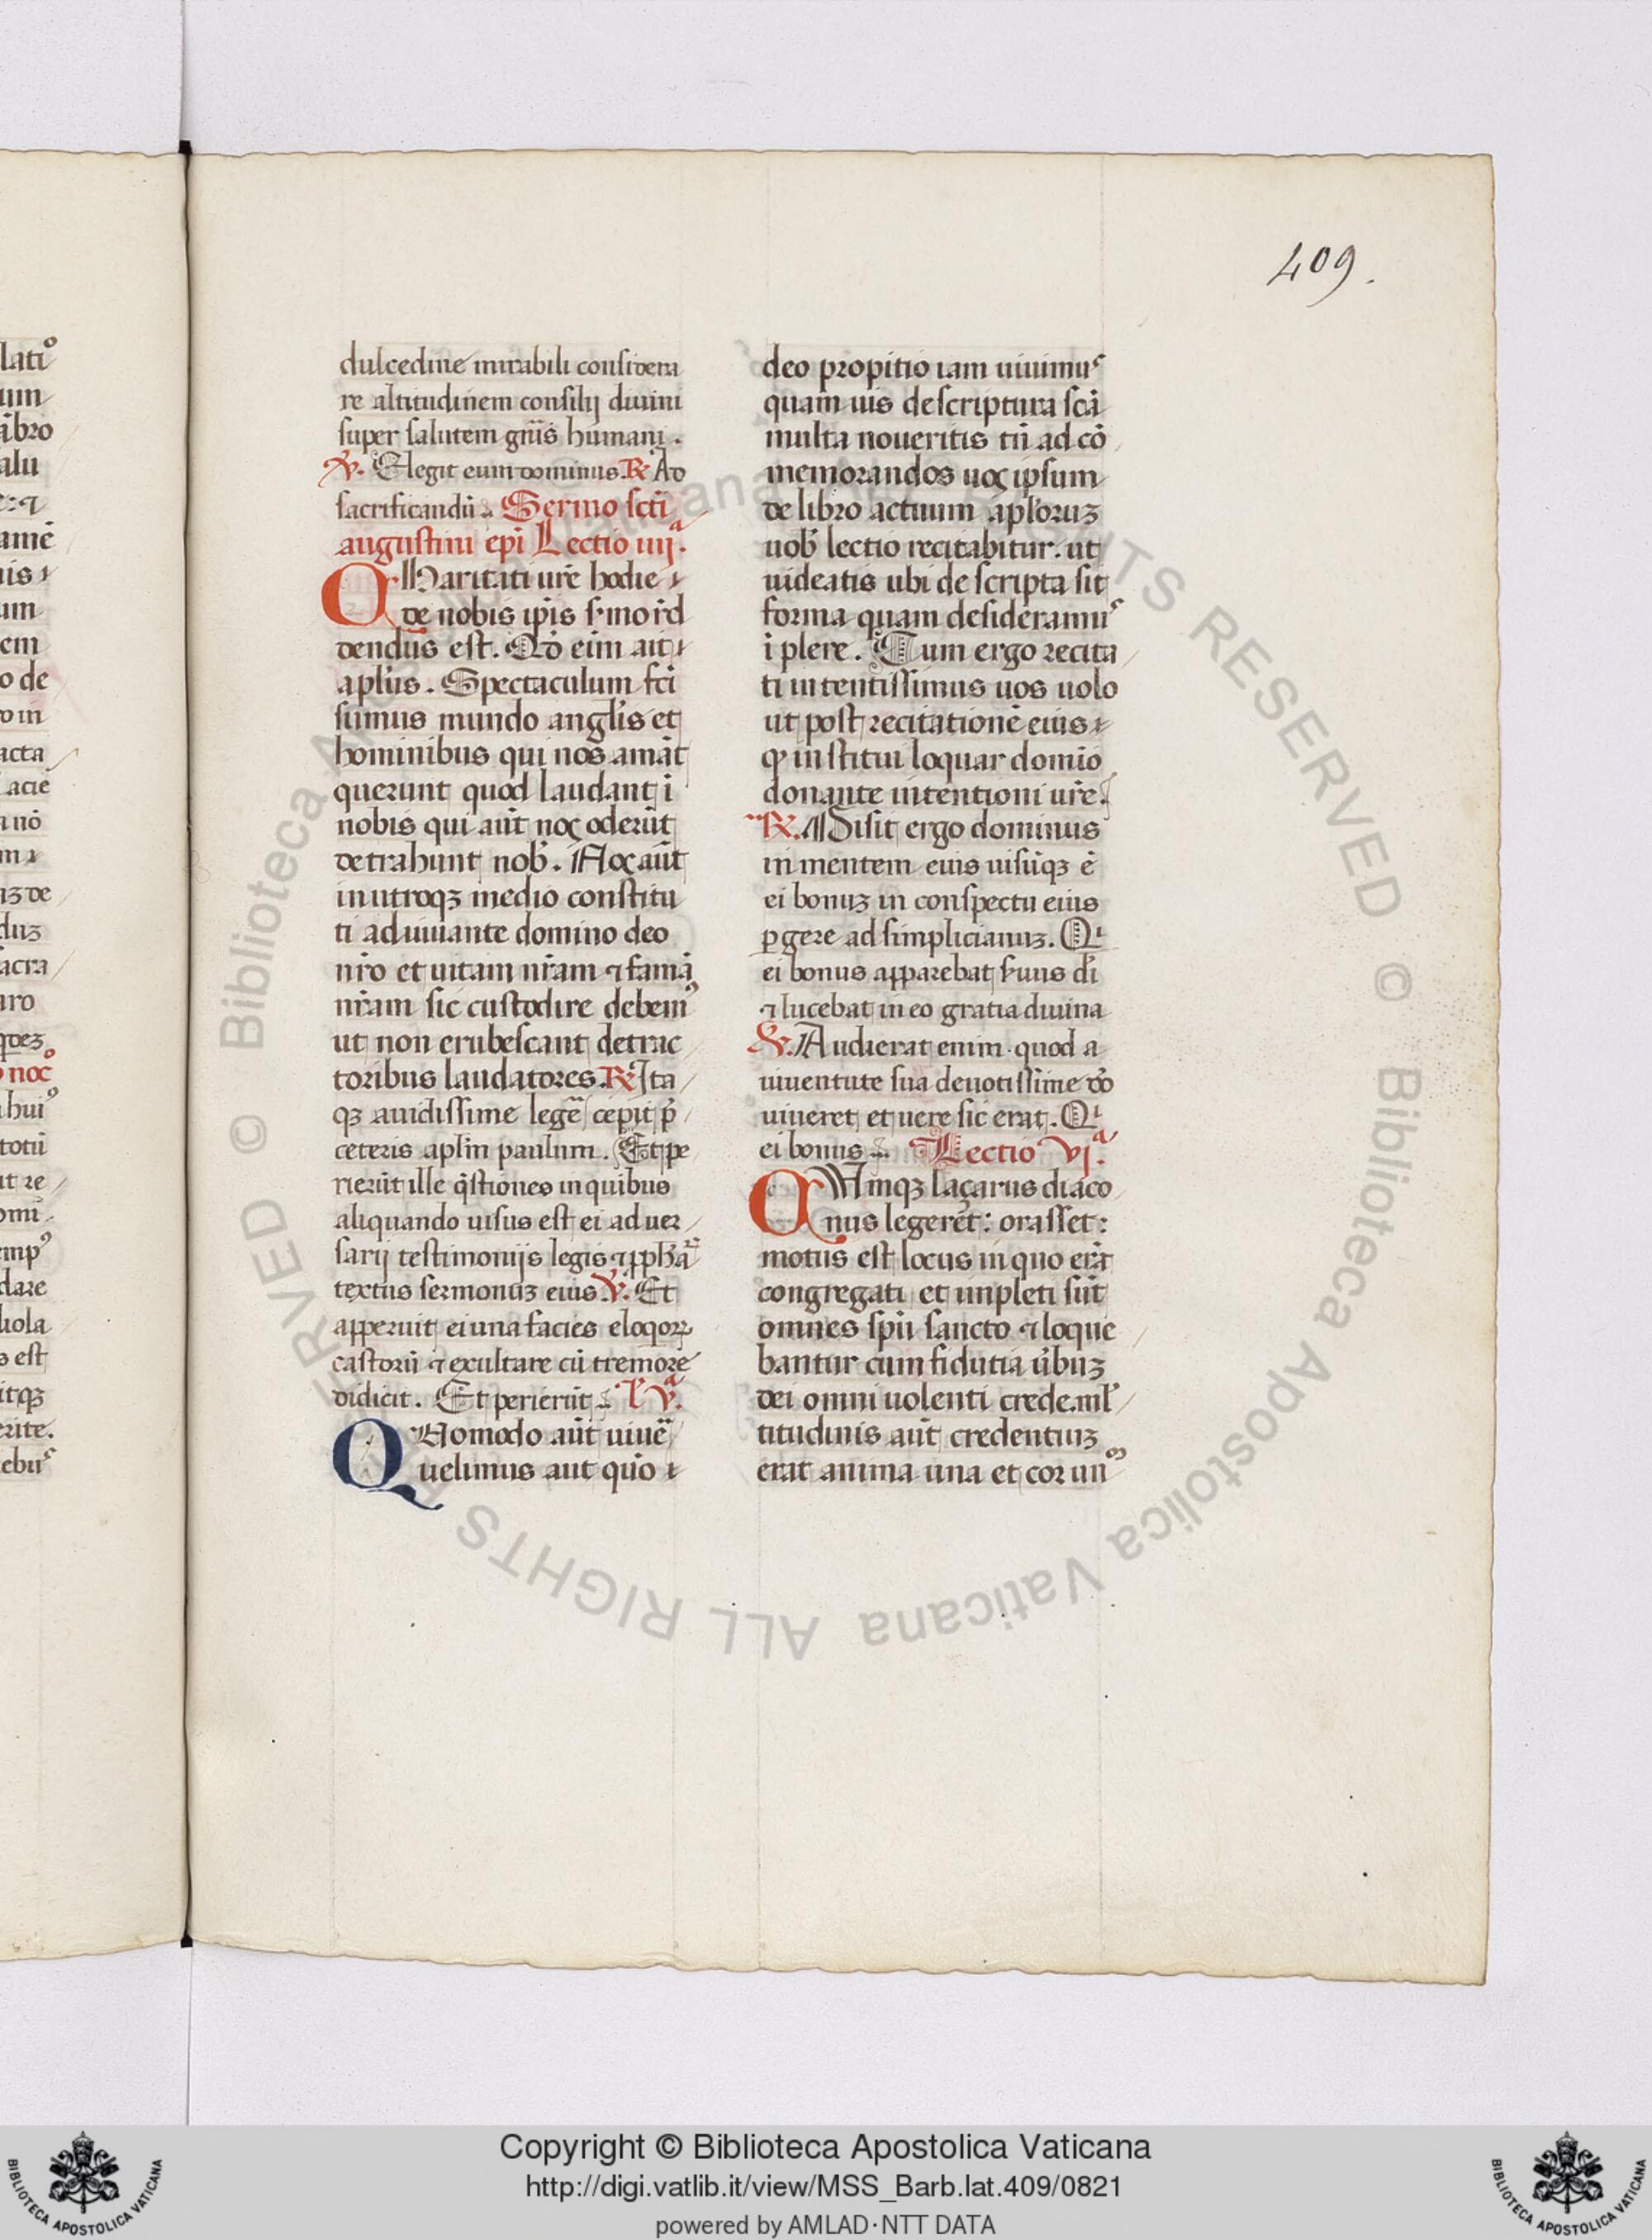 409.
dulcedine mirabili considera
re altitudinem consilij diuini
super salutem gnīs humani.
℣. Elegit eum dominus. ℟ Ad
sacrificandū. Sermo scti
augustini epi Lectio iiijᵃ.
CHaritati ur̄e hodie
de nobis ip̄is s'mo rd
dendus est. Qd̄ eim̄ ait
aplūs. Spectaculum fc̄i
sumus mundo anglīs et
hominibus qui nos amāt
querunt quod laudant ī
nobis qui aūt nos oderūt
detrahunt nob̄. Nos aūt
in utroqꝫ medio constitu
ti adiuuante domino deo
nr̄o et uitam nr̄am ⁊ famā
nr̄am sic custodire debemꝰ
ut non erubescant detrac
toribus laudatores. ℟ Ita
qꝫ auidissime legē cepit p̄
ceteris aplm̄ paulum. Et pe
rierūt ille q̄stiones in quibus
aliquando uisus est ei aduer
sarij testimonijs legis ⁊ ꝓphā
textus sermonuꝫ eius. ℣. Et
apperuit ei una facies eloqoꝝ
castorū ⁊ exultare cū tremore
didicit. Et perierūt. l' vᵃ.
QUomodo aūt uiuē
uelimus aut quō
deo propitio iam uiuimuˢ
quam uis de scriptura scā
multa noueritis tn̄ ad cō
memorandos uos ipsum
de libro actuum apl'oruꝫ
uob̄ lectio recitabitur. ut
uideatis ubi de scripta sit
forma quam desideramuˢ
i plere. Cum ergo recita
ti intentissimus uos uolo
ut post recitationē eius
qꝫ institui loquar domīo
donante intentioni ur̄e.
℟. Misit ergo dominus
in mentem eius uisūqꝫ ē
ei bonuꝫ in conspectu eius
ꝑgere ad simplicianuꝫ. Qi
ei bonus apparebat s'uus di
⁊ lucebat in eo gratia diuina
℣. Audierat enim quod a
iuuentute sua deuotissime dō
uiueret et uere sic erat. Qi
ei bonus. Lectio vjᵃ.
CUmqꝫ laçarus diaco
nus legeret: orasset:
motus est locus in quo erāt
congregati et impleti sūt
omnes spū sancto ⁊ loque
bantur cum fidutia ūbuꝫ
dei omni uolenti crede. ml'
titudinis aūt credentiuꝫ
erat anima una et cor unᵐ
lati°
um
ibro
alu
amē
uis
um
em
o de
o in
acta
acie
nō
duꝫ
acra
uro
noc
huiꝰ
totū
ut re
empꝰ
dare
liola
s est
itqꝫ
rite.
ebuˢ
© Biblioteca Apostolica Vaticana ALL RIGHTS RESERVED © Biblioteca Apostolica Vaticana ALL RIGHTS RESERVED
BIBLIOTECA APOSTOLICA VATICANA
Copyright © Biblioteca Apostolica Vaticana
http://digi.vatlib.it/view/MSS_Barb.lat.409/0821
powered by AMLAD·NTT DATA
BIBLIOTECA APOSTOLICA VATICANA